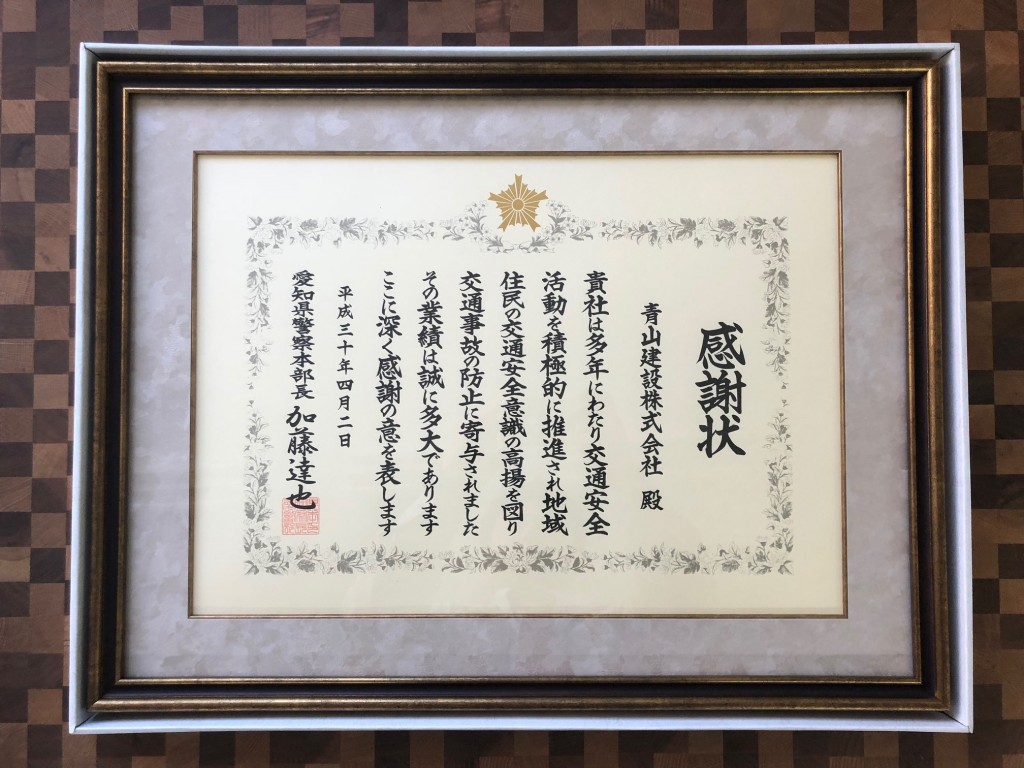 感謝状
青山建設株式会社 殿
貴社は多年にわたり交通安全
活動を積極的に推進され地域
住民の交通安全意識の高揚を図り
交通事故の防止に寄与されました
その業績は誠に多大であります
ここに深く感謝の意を表します
平成三十年四月二日
愛知県警察本部長 加藤達也